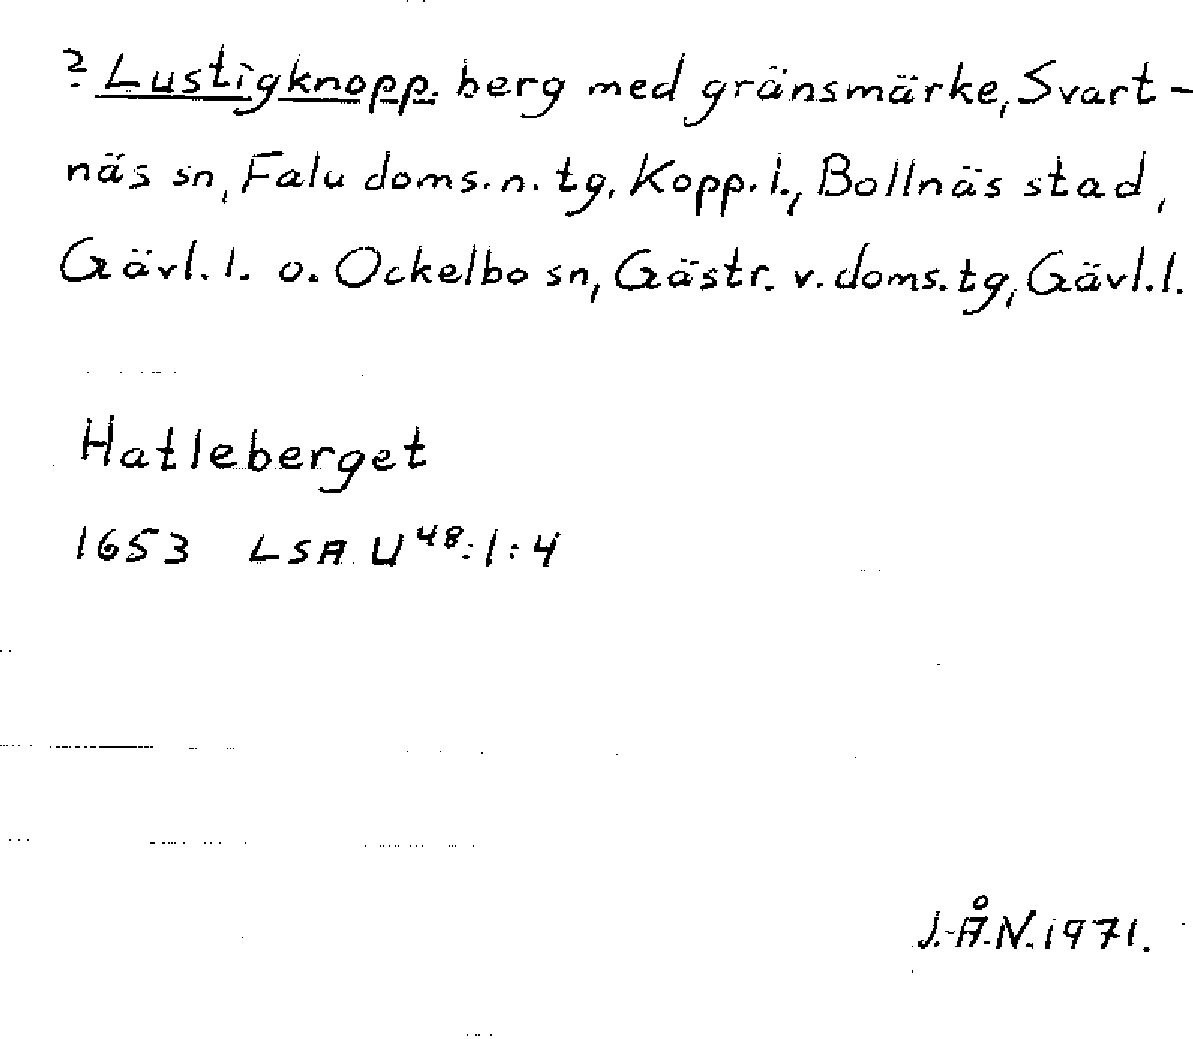 ? Lustigknopp. berg med gränsmärke, Svart-
näs sn, Falu doms. n. tg, Kopp. l., Bollnäs stad,
Gävl. l. o. Ockelbo sn, Gästr. v. doms. tg, Gävl. l.
Hatleberget
1653 LSA U⁴⁸:1:4
J.-Å.N. 1971.